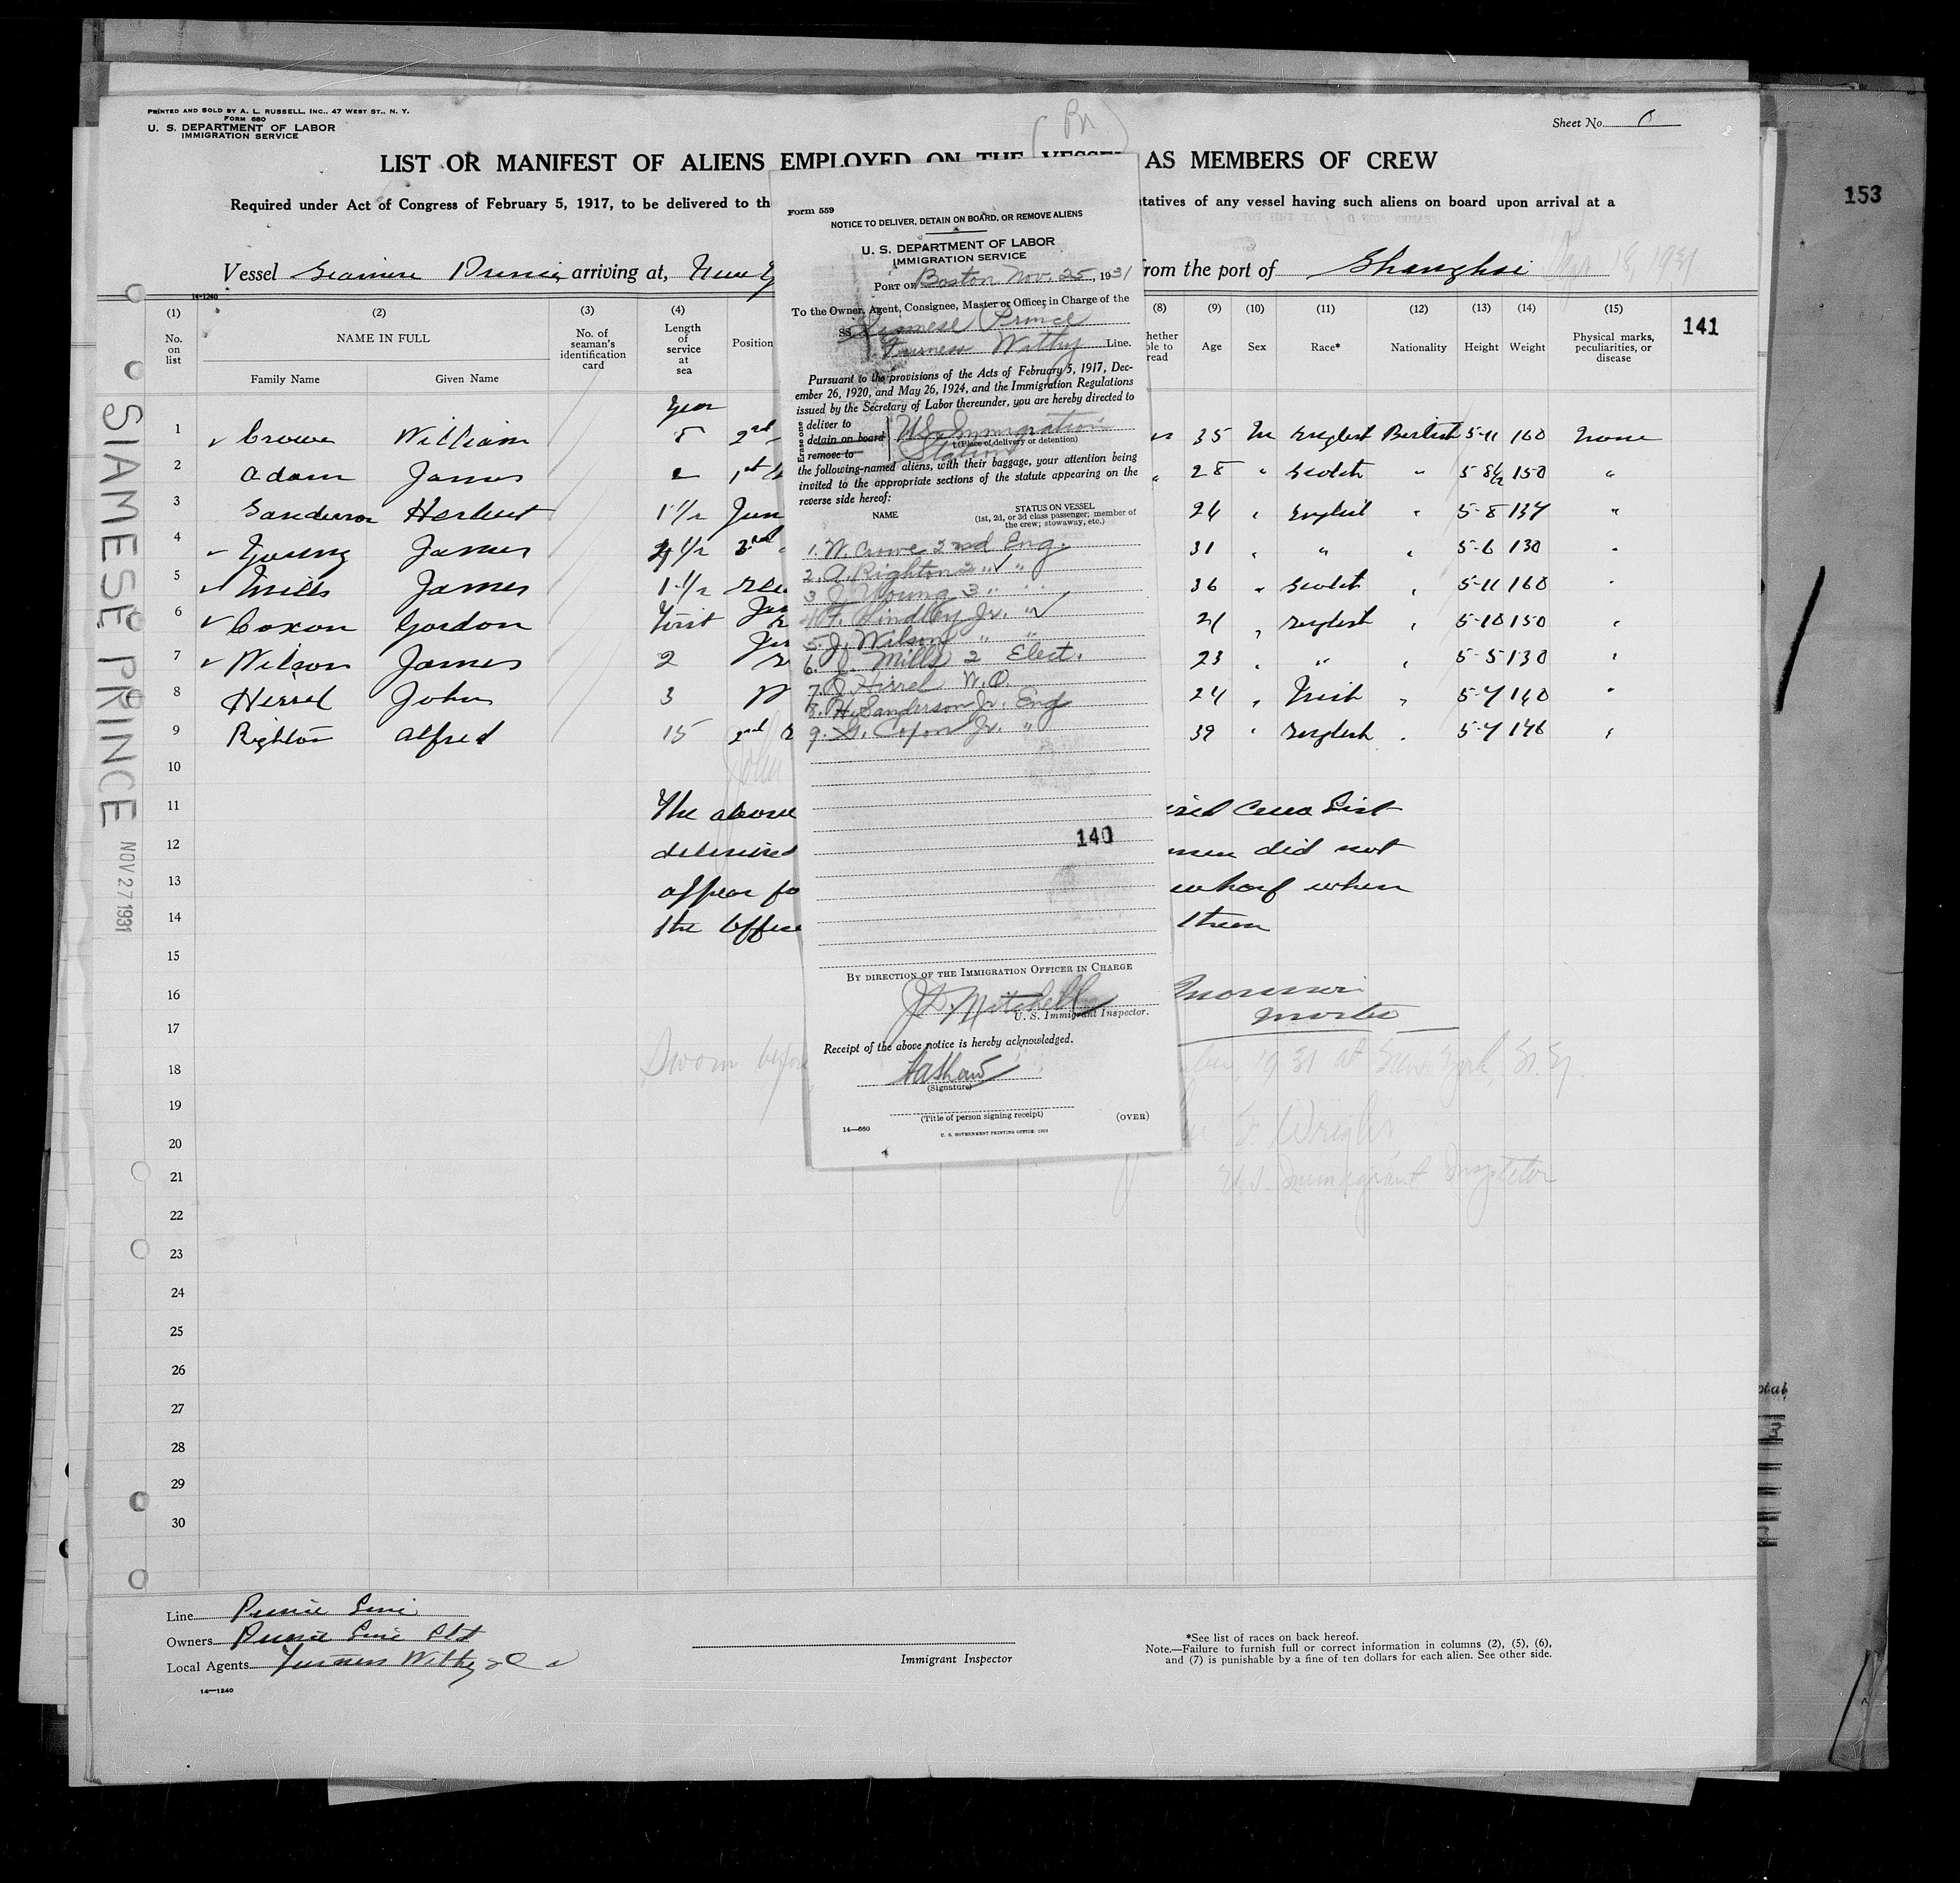 PRINTED AND SOLD BY A. L. RUSSELL, INC., 47 WEST ST., N. Y.
FORM 680
U. S. DEPARTMENT OF LABOR
IMMIGRATION SERVICE
Sheet No.
LIST OR MANIFEST OF ALIENS EMPLOYED ON THE VESSEL AS MEMBERS OF CREW
Required under Act of Congress of February 5, 1917, to be delivered to th
tatives of any vessel having such aliens on board upon arrival at a
153
Vessel Siamese Prince arriving at, New Y
from the port of Shanghai
14-1240
(1) (2) (3) (4) (8) (9) (10) (11) (12) (13) (14) (15)
141
No. on list
NAME IN FULL
Family Name Given Name
No. of seaman's identification card
Length of service at sea
Position
hether ble to read
Age Sex Race* Nationality Height Weight
Physical marks, peculiarities, or disease
Year
1 Crowe William 2nd 35 M English British 5-11 160 None
2 Adam James 1st 28 " Scotch " 5-8½ 150 "
3 Sanderson Herbert 1 1/2 Jun 24 " English " 5-8 134 "
4 Young James 3rd 31 " " " 5-6 130 "
5 Mills James 1 1/2 36 " Scotch " 5-11 160 "
6 Coxon Gordon First 21 " English " 5-10 150 "
7 Wilson James 2 23 " " " 5-5 130 "
8 Hirrel John 3 24 " Irish " 5-7 140 "
9 Righton Alfred 15 2nd 39 " English " 5-7 146 "
10
11 The above Crew List
12 delivered men did not
13 appear fo wharf when
14 the office them
15
16
Master
17
18 Sworn before 1931 at New York, N.Y.
19 Wright
20
21 U.S. Immigrant Inspector
22
23
24
25
26
27
28
29
30
SIAMESE PRINCE NOV 27 1931
Form 559
NOTICE TO DELIVER, DETAIN ON BOARD, OR REMOVE ALIENS
U. S. DEPARTMENT OF LABOR
IMMIGRATION SERVICE
PORT OF Boston Nov. 25, 1931
To the Owner, Agent, Consignee, Master or Officer in Charge of the
SS. Siamese Prince
Furness Withy Line.
Pursuant to the provisions of the Acts of February 5, 1917, Dec-
ember 26, 1920, and May 26, 1924, and the Immigration Regulations
issued by the Secretary of Labor thereunder, you are hereby directed to
Erase one
deliver to
detain on board
remove to
U.S. Immigration
(Place of delivery or detention)
Station
the following-named aliens, with their baggage, your attention being
invited to the appropriate sections of the statute appearing on the
reverse side hereof:
NAME
STATUS ON VESSEL
(1st, 2d, or 3d class passenger; member of
the crew; stowaway, etc.)
1. W. Crowe 2nd Eng.
2. A. Righton 2 " "
3 J. Young 3 " "
4 F. Hindley Jr. "
5. J. Wilson " "
6. J. Mills 2 Elect.
7. J. Hirrel W.O.
8. H. Sanderson Jr. Eng
9. G. Coxon Jr. "
140
BY DIRECTION OF THE IMMIGRATION OFFICER IN CHARGE
J.D. Mitchell
U. S. Immigrant Inspector.
Receipt of the above notice is hereby acknowledged.
(Signature)
(Title of person signing receipt)
(OVER)
14—660
U. S. GOVERNMENT PRINTING OFFICE:
Line Prince Line
Owners Prince Line Ltd
Local Agents Furness Withy & Co
14—1240
Immigrant Inspector
*See list of races on back hereof.
Note.—Failure to furnish full or correct information in columns (2), (5), (6),
and (7) is punishable by a fine of ten dollars for each alien. See other side.